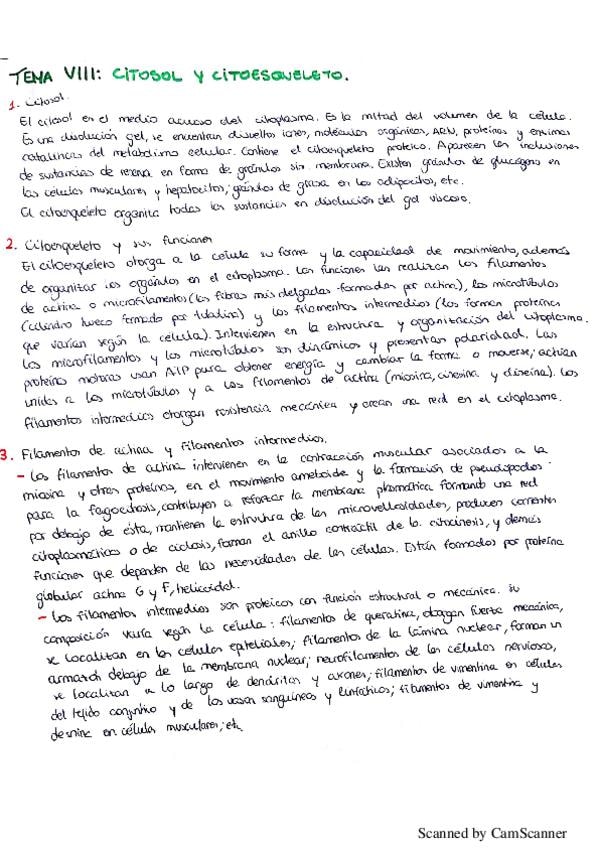 TEMA VIII: CITOSOL Y CITOESQUELETO.
1. Citosol.
El citosol es el medio acuoso del citoplasma. Es la mitad del volumen de la célula.
Es una disolución gel, se encuentran disueltos iones, moléculas orgánicas, ARN, proteínas y enzimas
catalíticas del metabolismo celular. Contiene el citoesqueleto proteico. Aparecen las inclusiones
de sustancias de reserva en forma de gránulos sin membrana. Existen gránulos de glucógeno en
las células musculares y hepatocitos, gránulos de grasa en los adipocitos, etc.
El citoesqueleto organiza todas las sustancias en disolución del gel viscoso.
2. Citoesqueleto y sus funciones
El citoesqueleto otorga a la célula su forma y la capacidad de movimiento, además
de organizar los orgánulos en el citoplasma. Las funciones las realizan los filamentos
de actina o microfilamentos (las fibras más delgadas formadas por actina), los microtúbulos
(cilindro hueco formado por tubulina) y los filamentos intermedios (los forman proteínas
que varían según la célula). Intervienen en la estructura y organización del citoplasma.
Los microfilamentos y los microtúbulos son dinámicos y presentan polaridad. Las
proteínas motoras usan ATP para obtener energía y cambiar la forma o moverse, actúan
unidas a los microtúbulos y a los filamentos de actina (miosina, cinesina y dineína). Los
filamentos intermedios otorgan resistencia mecánica y crean una red en el citoplasma.
3. Filamentos de actina y filamentos intermedios.
- Los filamentos de actina intervienen en la contracción muscular asociados a la
miosina y otras proteínas, en el movimiento ameboide y la formación de pseudópodos
para la fagocitosis, contribuyen a reforzar la membrana plasmática formando una red
por debajo de ésta, mantienen la estructura de las microvellosidades, producen corrientes
citoplasmáticas o de ciclosis, forman el anillo contráctil de la citocinesis, y demás
funciones que dependen de las necesidades de las células. Están formados por proteína
globular actina G y F, helicoidal.
- Los filamentos intermedios son proteicos con función estructural o mecánica. Su
composición varía según la célula: filamentos de queratina, otorgan fuerza mecánica,
se localizan en las células epiteliales; filamentos de la lámina nuclear, forman un
armazón debajo de la membrana nuclear; neurofilamentos de las células nerviosas,
se localizan a lo largo de dendritas y axones; filamentos de vimentina en células
del tejido conjuntivo y de los vasos sanguíneos y linfáticos; filamentos de vimentina y
desmina en célula musculares; etc.
Scanned by CamScanner